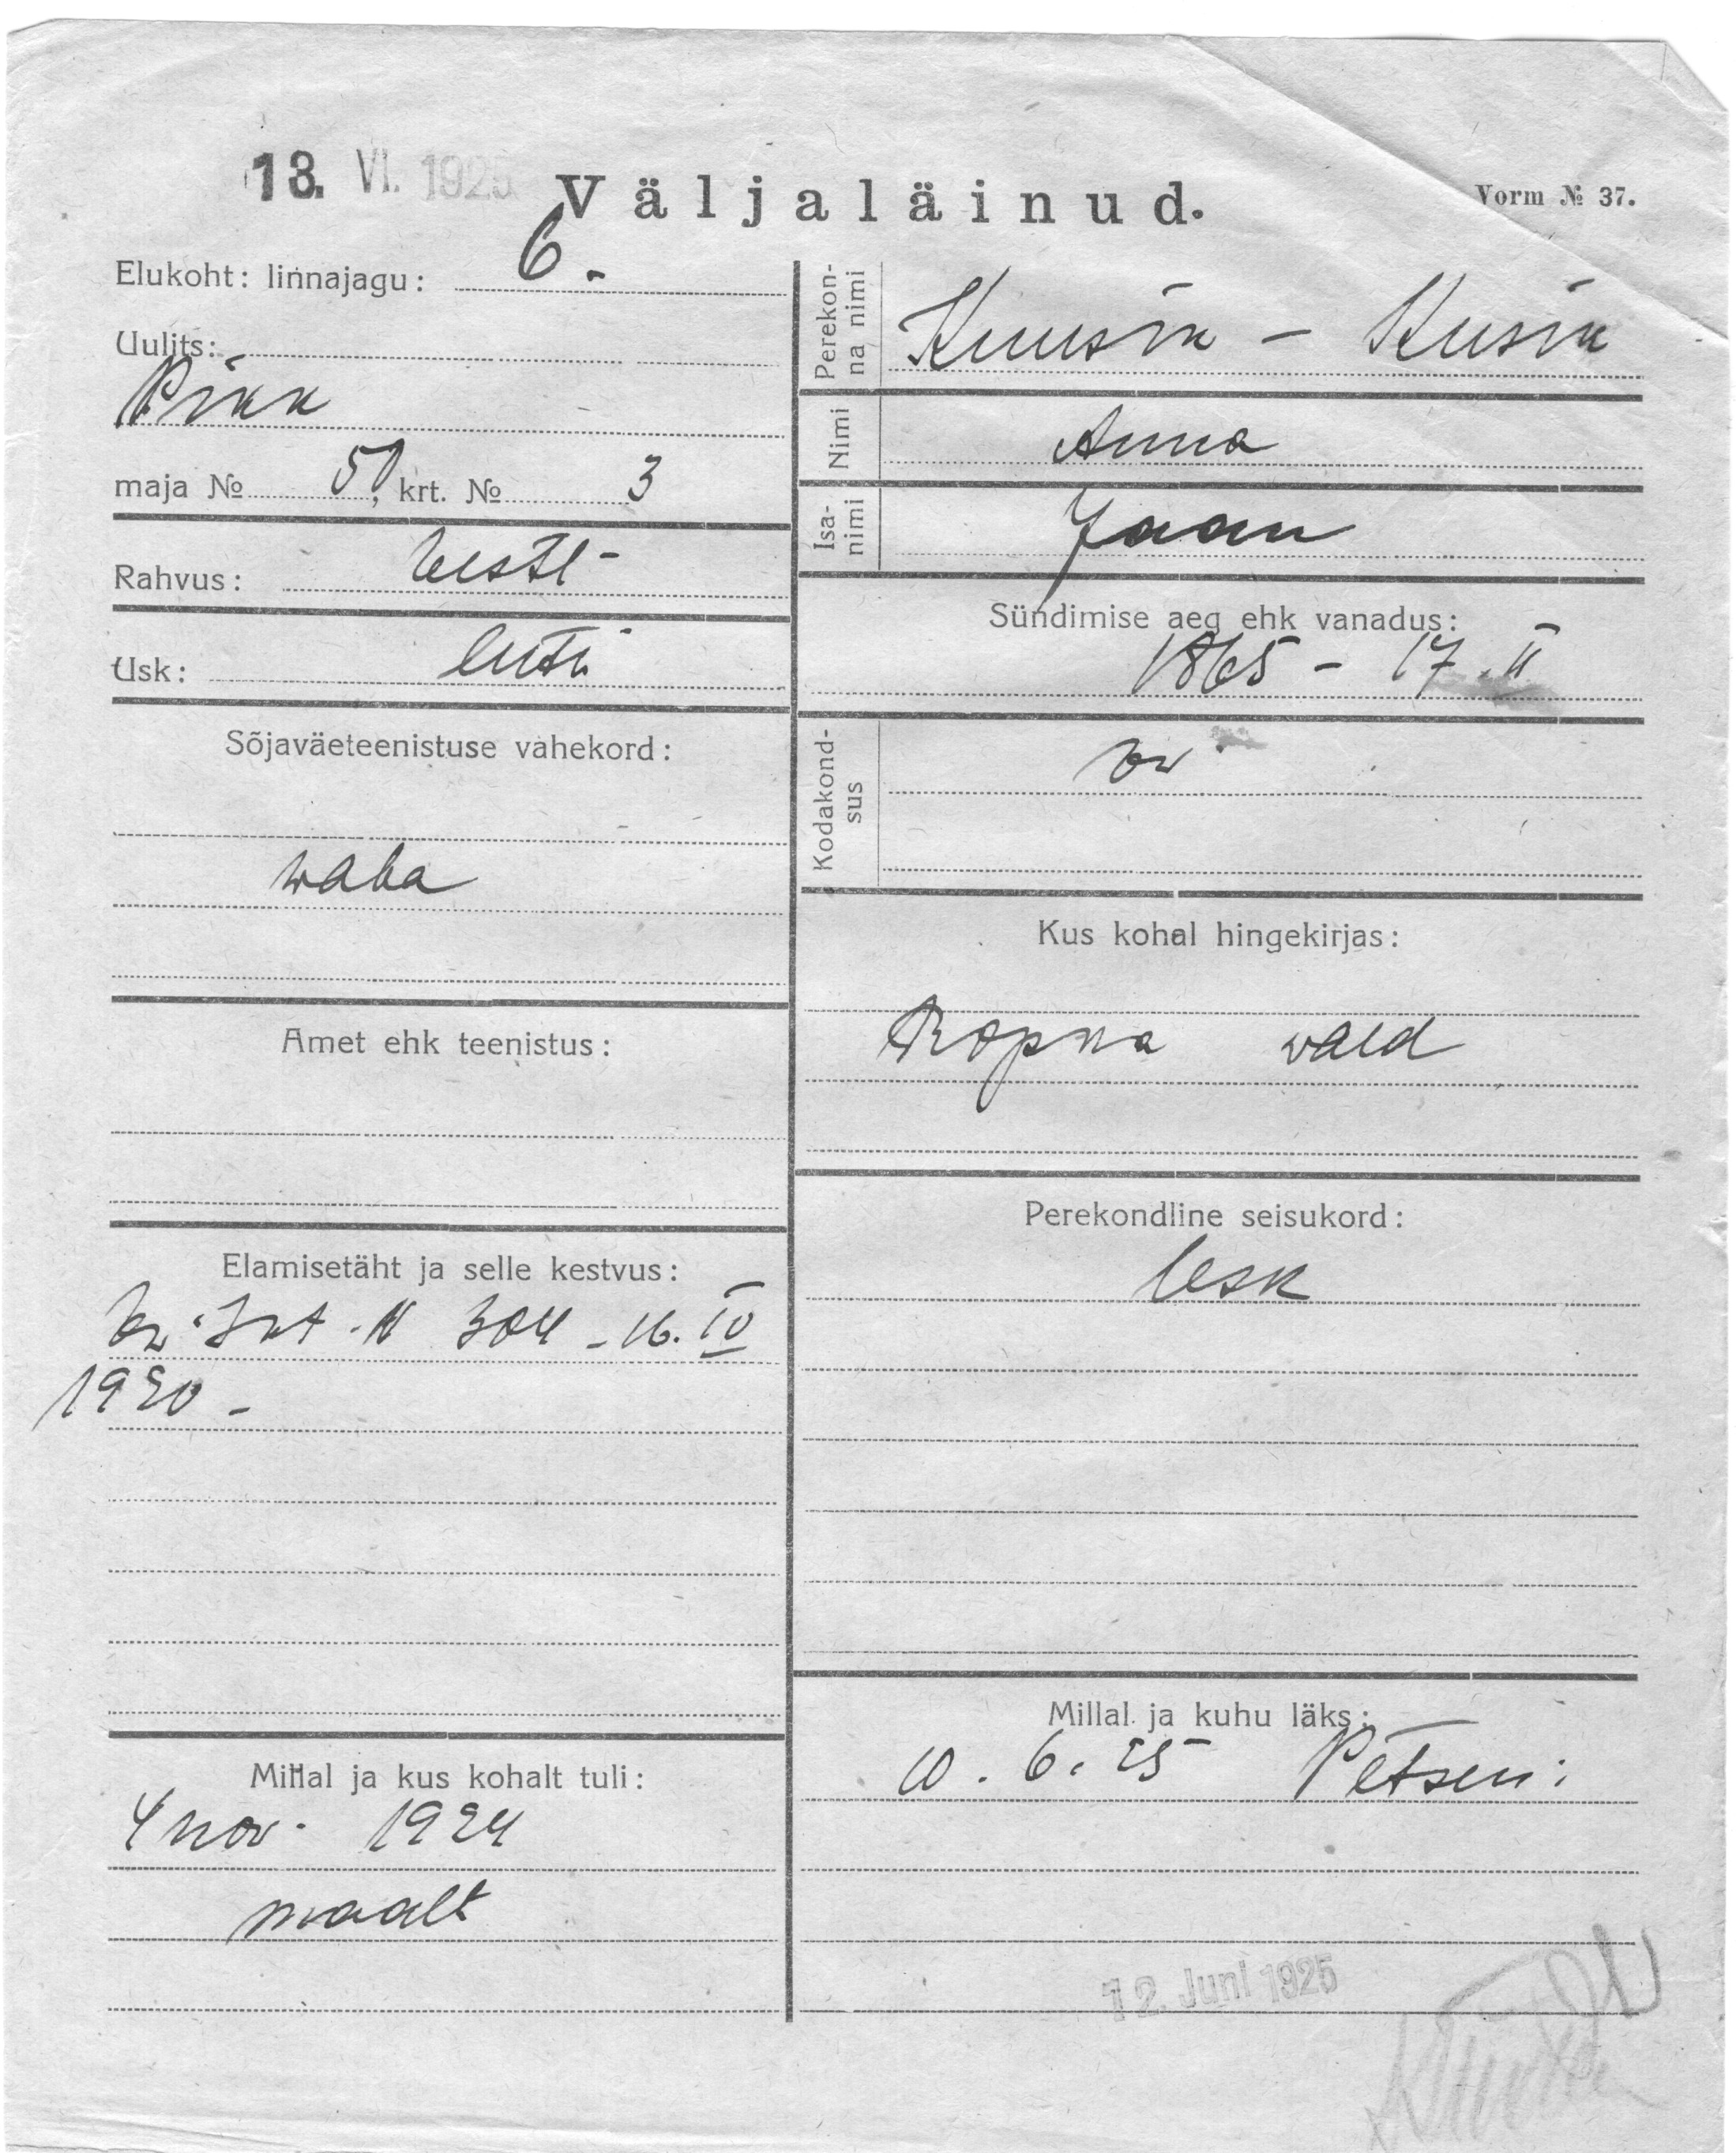 13. VI. 1925
Väljaläinud.
Vorm № 37.
Elukoht: linnajagu: 6.
Uulits:
Pikk
maja № 50, krt. № 3
Rahvus: Eesti
Usk: luti
Sõjaväeteenistuse vahekord:
waba
Amet ehk teenistus:
Elamisetäht ja selle kestvus:
304 - 16. IV
1920 -
Millal ja kus kohalt tuli:
4 nov. 1924
maalt
Perekon-
na nimi
Kuusik - Kusik
Nimi Anna
Isa-
nimi
Jaan
Sündimise aeg ehk vanadus:
1865 - 17. II
Kodakond-
sus
Kus kohal hingekirjas:
Ropka wald
Perekondline seisukord:
lesk
Millal ja kuhu läks:
10. 6. 25 Petseri
12. Juni 1925